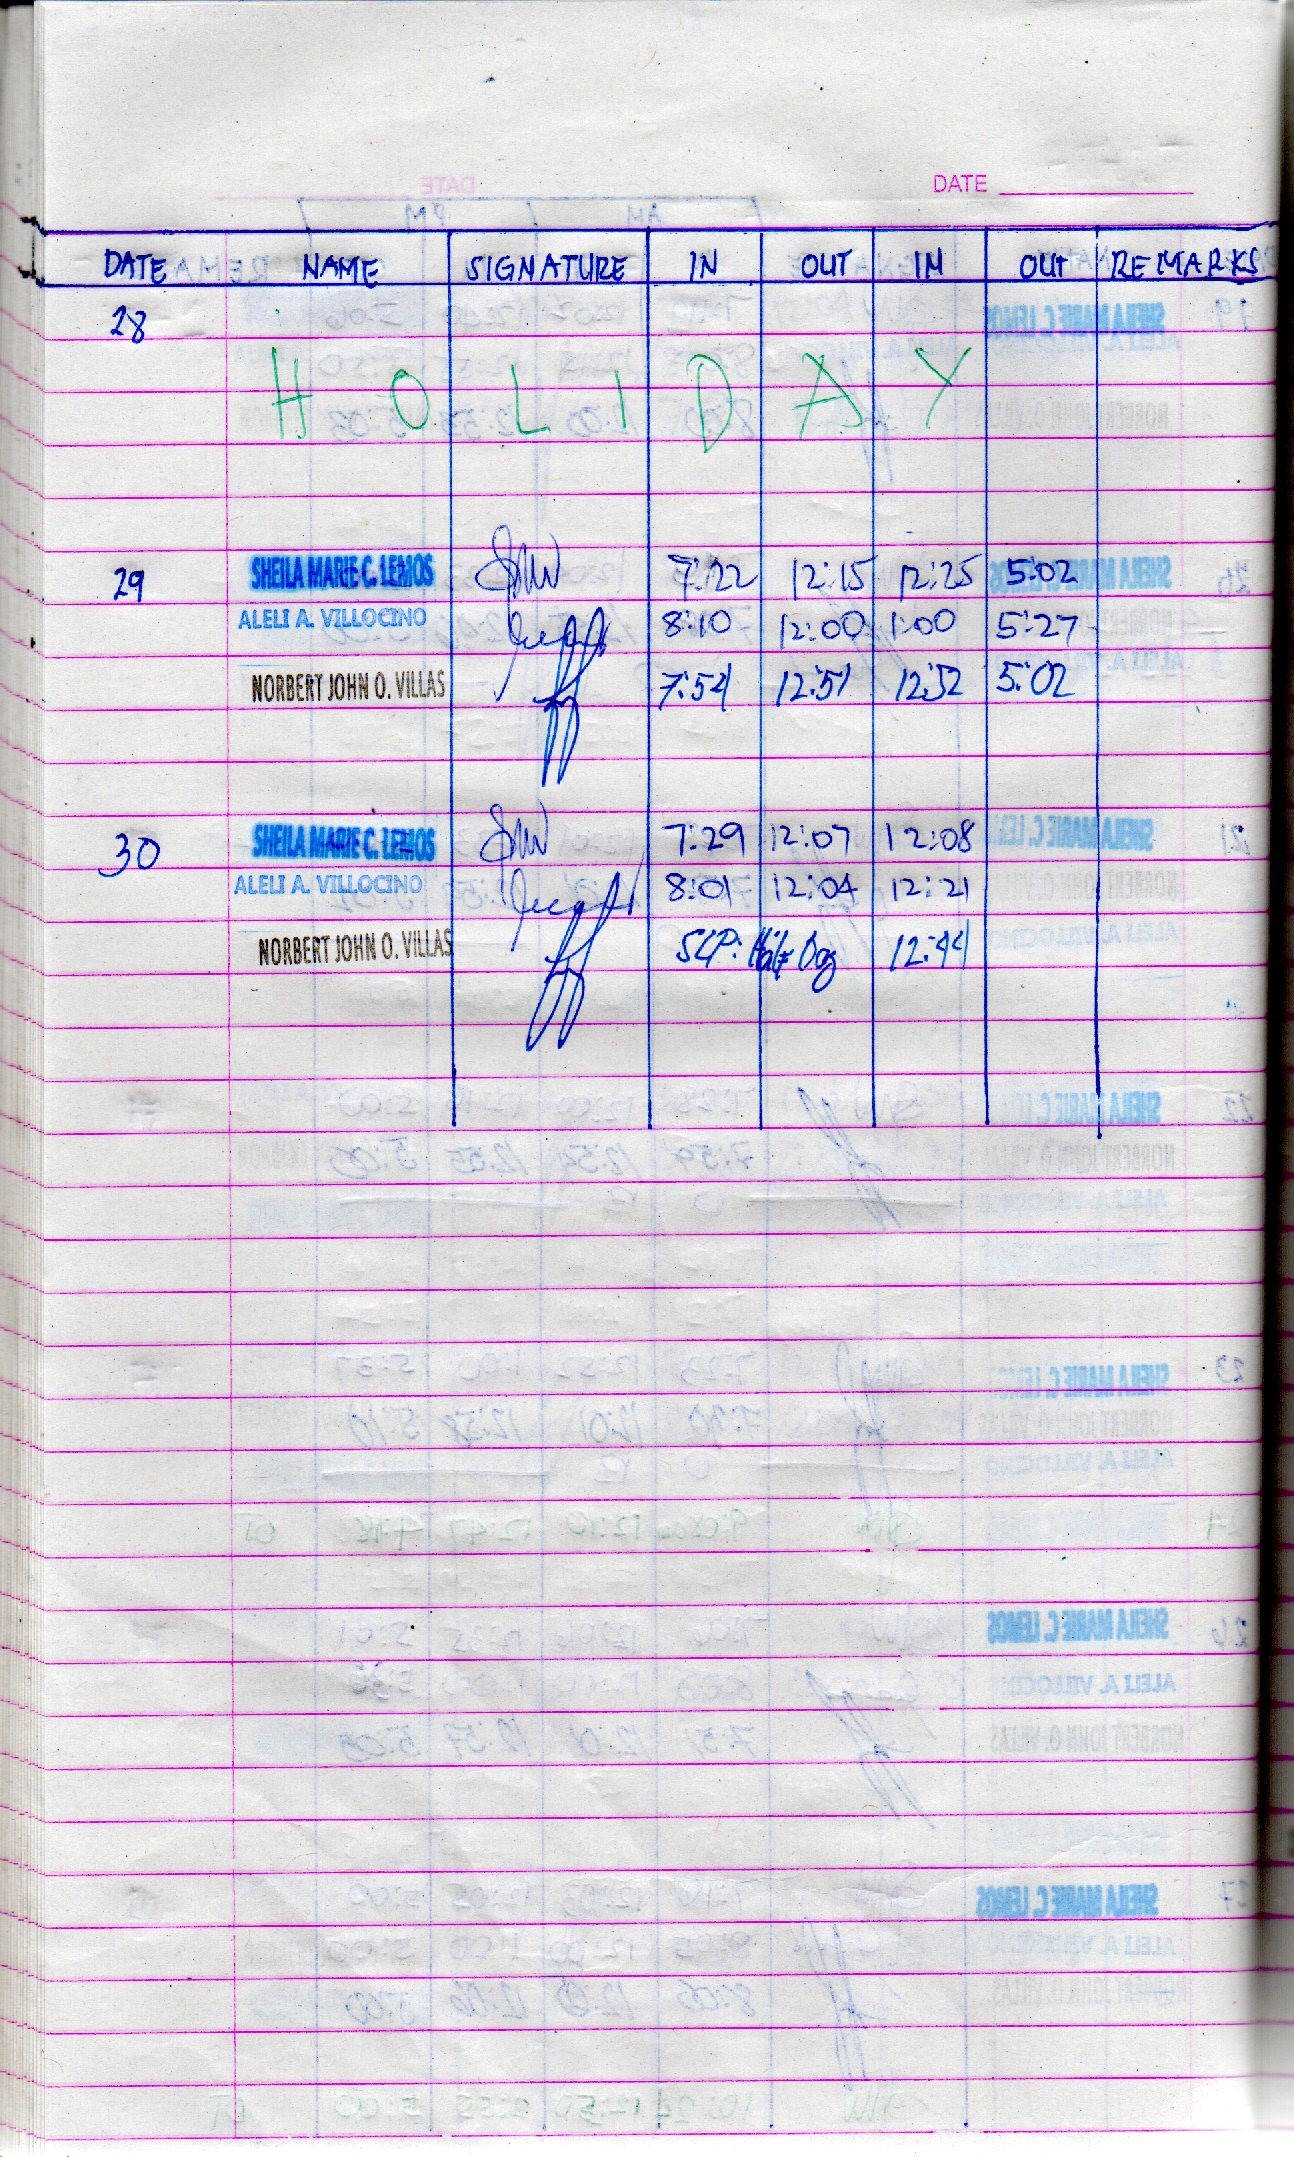 DATE
DATE NAME SIGNATURE IN OUT IN OUT REMARKS
28
HOLIDAY
29 SHEILA MARIE C. LEMOS 7:22 12:15 12:25 5:02
ALELI A. VILLOCINO 8:10 12:00 1:00 5:27
NORBERT JOHN O. VILLAS 7:54 12:51 12:52 5:02
30 SHEILA MARIE C. LEMOS 7:29 12:07 12:08
ALELI A. VILLOCINO 8:01 12:04 12:21
NORBERT JOHN O. VILLAS Half Day 12:44